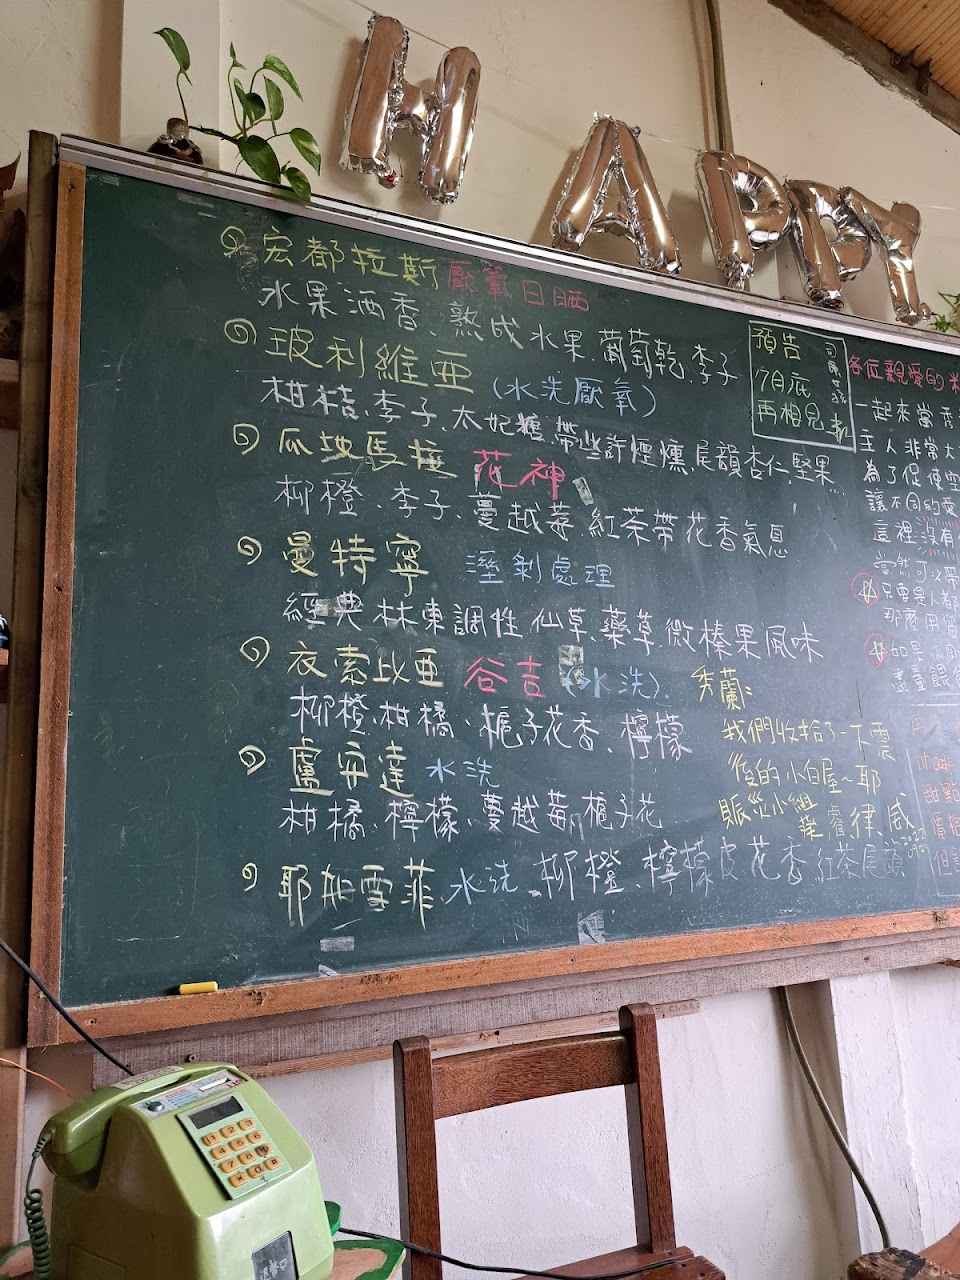 HAPPY
宏都拉斯 厭氧日晒
水果酒香、熟成水果 葡萄乾、李子
玻利維亞 (水洗厭氧)
柑桔、李子、太妃糖、帶些許煙燻尾韻杏仁、堅果...
瓜地馬拉 花神
柳橙、李子、蔓越莓 紅茶帶花香氣息
曼特寧 溼剝處理
經典林東調性 仙草、藥草、微榛果風味
衣索比亞 谷吉 (水洗)
柳橙、柑橘、梔子花香、檸檬
盧安達 水洗
柑橘、檸檬、蔓越莓、梔子花
耶加雪菲 水洗 柳橙、檸檬皮 花香 紅茶尾韻
預告
7月底
再相見
秀蘭:
我們收拾了一下震
後的小白屋~耶
賑災小組
睿 律、威
各位親愛的
一起來當
主人 非常大
為了促使空
讓不同的愛
這裡沒有
當然可以帶
只要是人都
那麼用留
如果
盡量
甜點
價格
1 2 3
4 5 6
7 8 9
* 0 #
退幣口